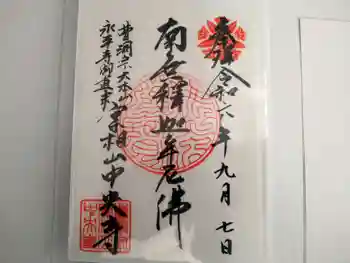 奉拝
令和六年九月七日
南無釋迦牟尼佛
曹洞宗大本山
永平寺御直末
中央寺